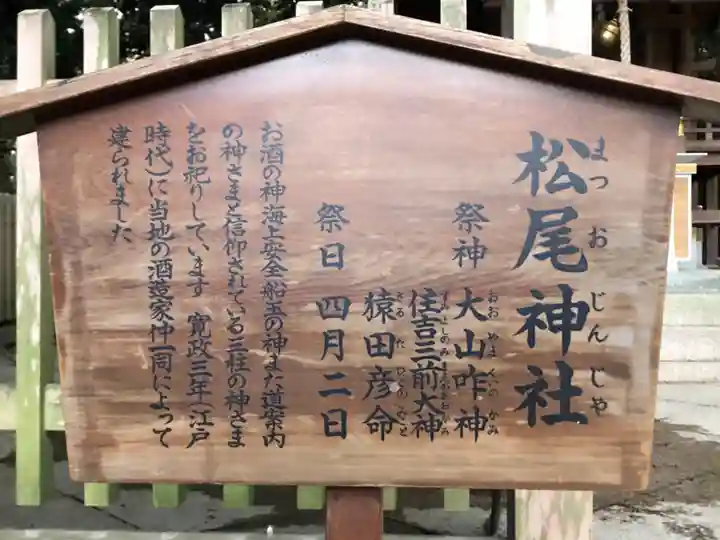 松尾神社
まつおじんじゃ
祭神 大山咋神
おおやまくいのかみ
住吉三前大神
猿田彦命
さるたひこのみこと
祭日 四月二日
お酒の神海上安全船玉の神また道案内
の神さまと信仰されている三柱の神さま
をお祀りしています 寛政三年(江戸
時代)に当地の酒造家仲一同によって
建られました、